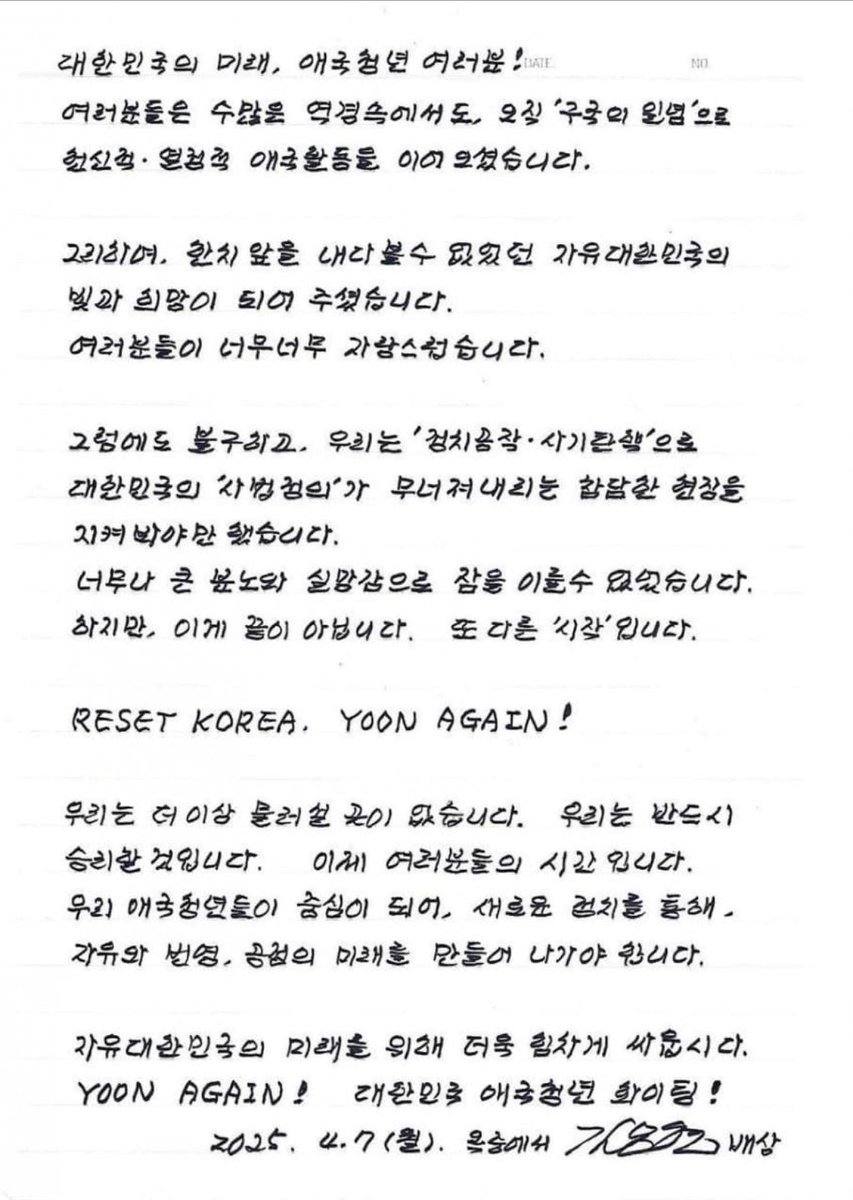 대한민국의 미래, 애국청년 여러분! DATE NO
여러분들은 수많은 역경속에서도, 오직 '구국의 일념'으로
헌신적·열정적 애국활동을 이어 오셨습니다.
그리하여, 한치 앞을 내다 볼수 없었던 자유대한민국의
빛과 희망이 되어 주셨습니다.
여러분들이 너무너무 자랑스럽습니다.
그럼에도 불구하고, 우리는 '정치공작·사기탄핵'으로
대한민국의 '사법정의'가 무너져내리는 참담한 현장을
지켜 봐야만 했습니다.
너무나 큰 분노와 실망감으로 잠을 이룰수 없었습니다.
하지만, 이게 끝이 아닙니다. 또 다른 '시작'입니다.
RESET KOREA. YOON AGAIN!
우리는 더 이상 물러설 곳이 없습니다. 우리는 반드시
승리할 것입니다. 이제 여러분들의 시간입니다.
우리 애국청년들이 중심이 되어, 새로운 정치를 통해,
자유와 번영, 공정의 미래를 만들어 나가야 합니다.
자유대한민국의 미래를 위해 더욱 힘차게 싸웁시다.
YOON AGAIN! 대한민국 애국청년 화이팅!
2025. 4.7(월). 옥중에서 김용현 배상